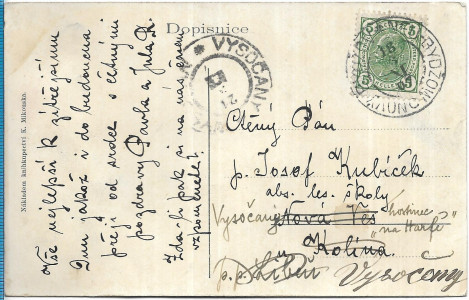 Dopisnice
Nákladem knihkupectví K. Mikonska.
Vše nejlepší k zítřejšímu
Dnu jakož i do budoucna
přejí od srdce s četnými
pozdravy Pavla a Jula K.
Zda-li pak si na nás všem
vzpomenete?
VYSOČANY
BYDŽOV
5
5
Ctěný Pán
p. Josef Kubíček
abs. les. školy
Vysočany Nová Ves
"na Harfě"
u Kolína
p. p. Libeň Vysočany